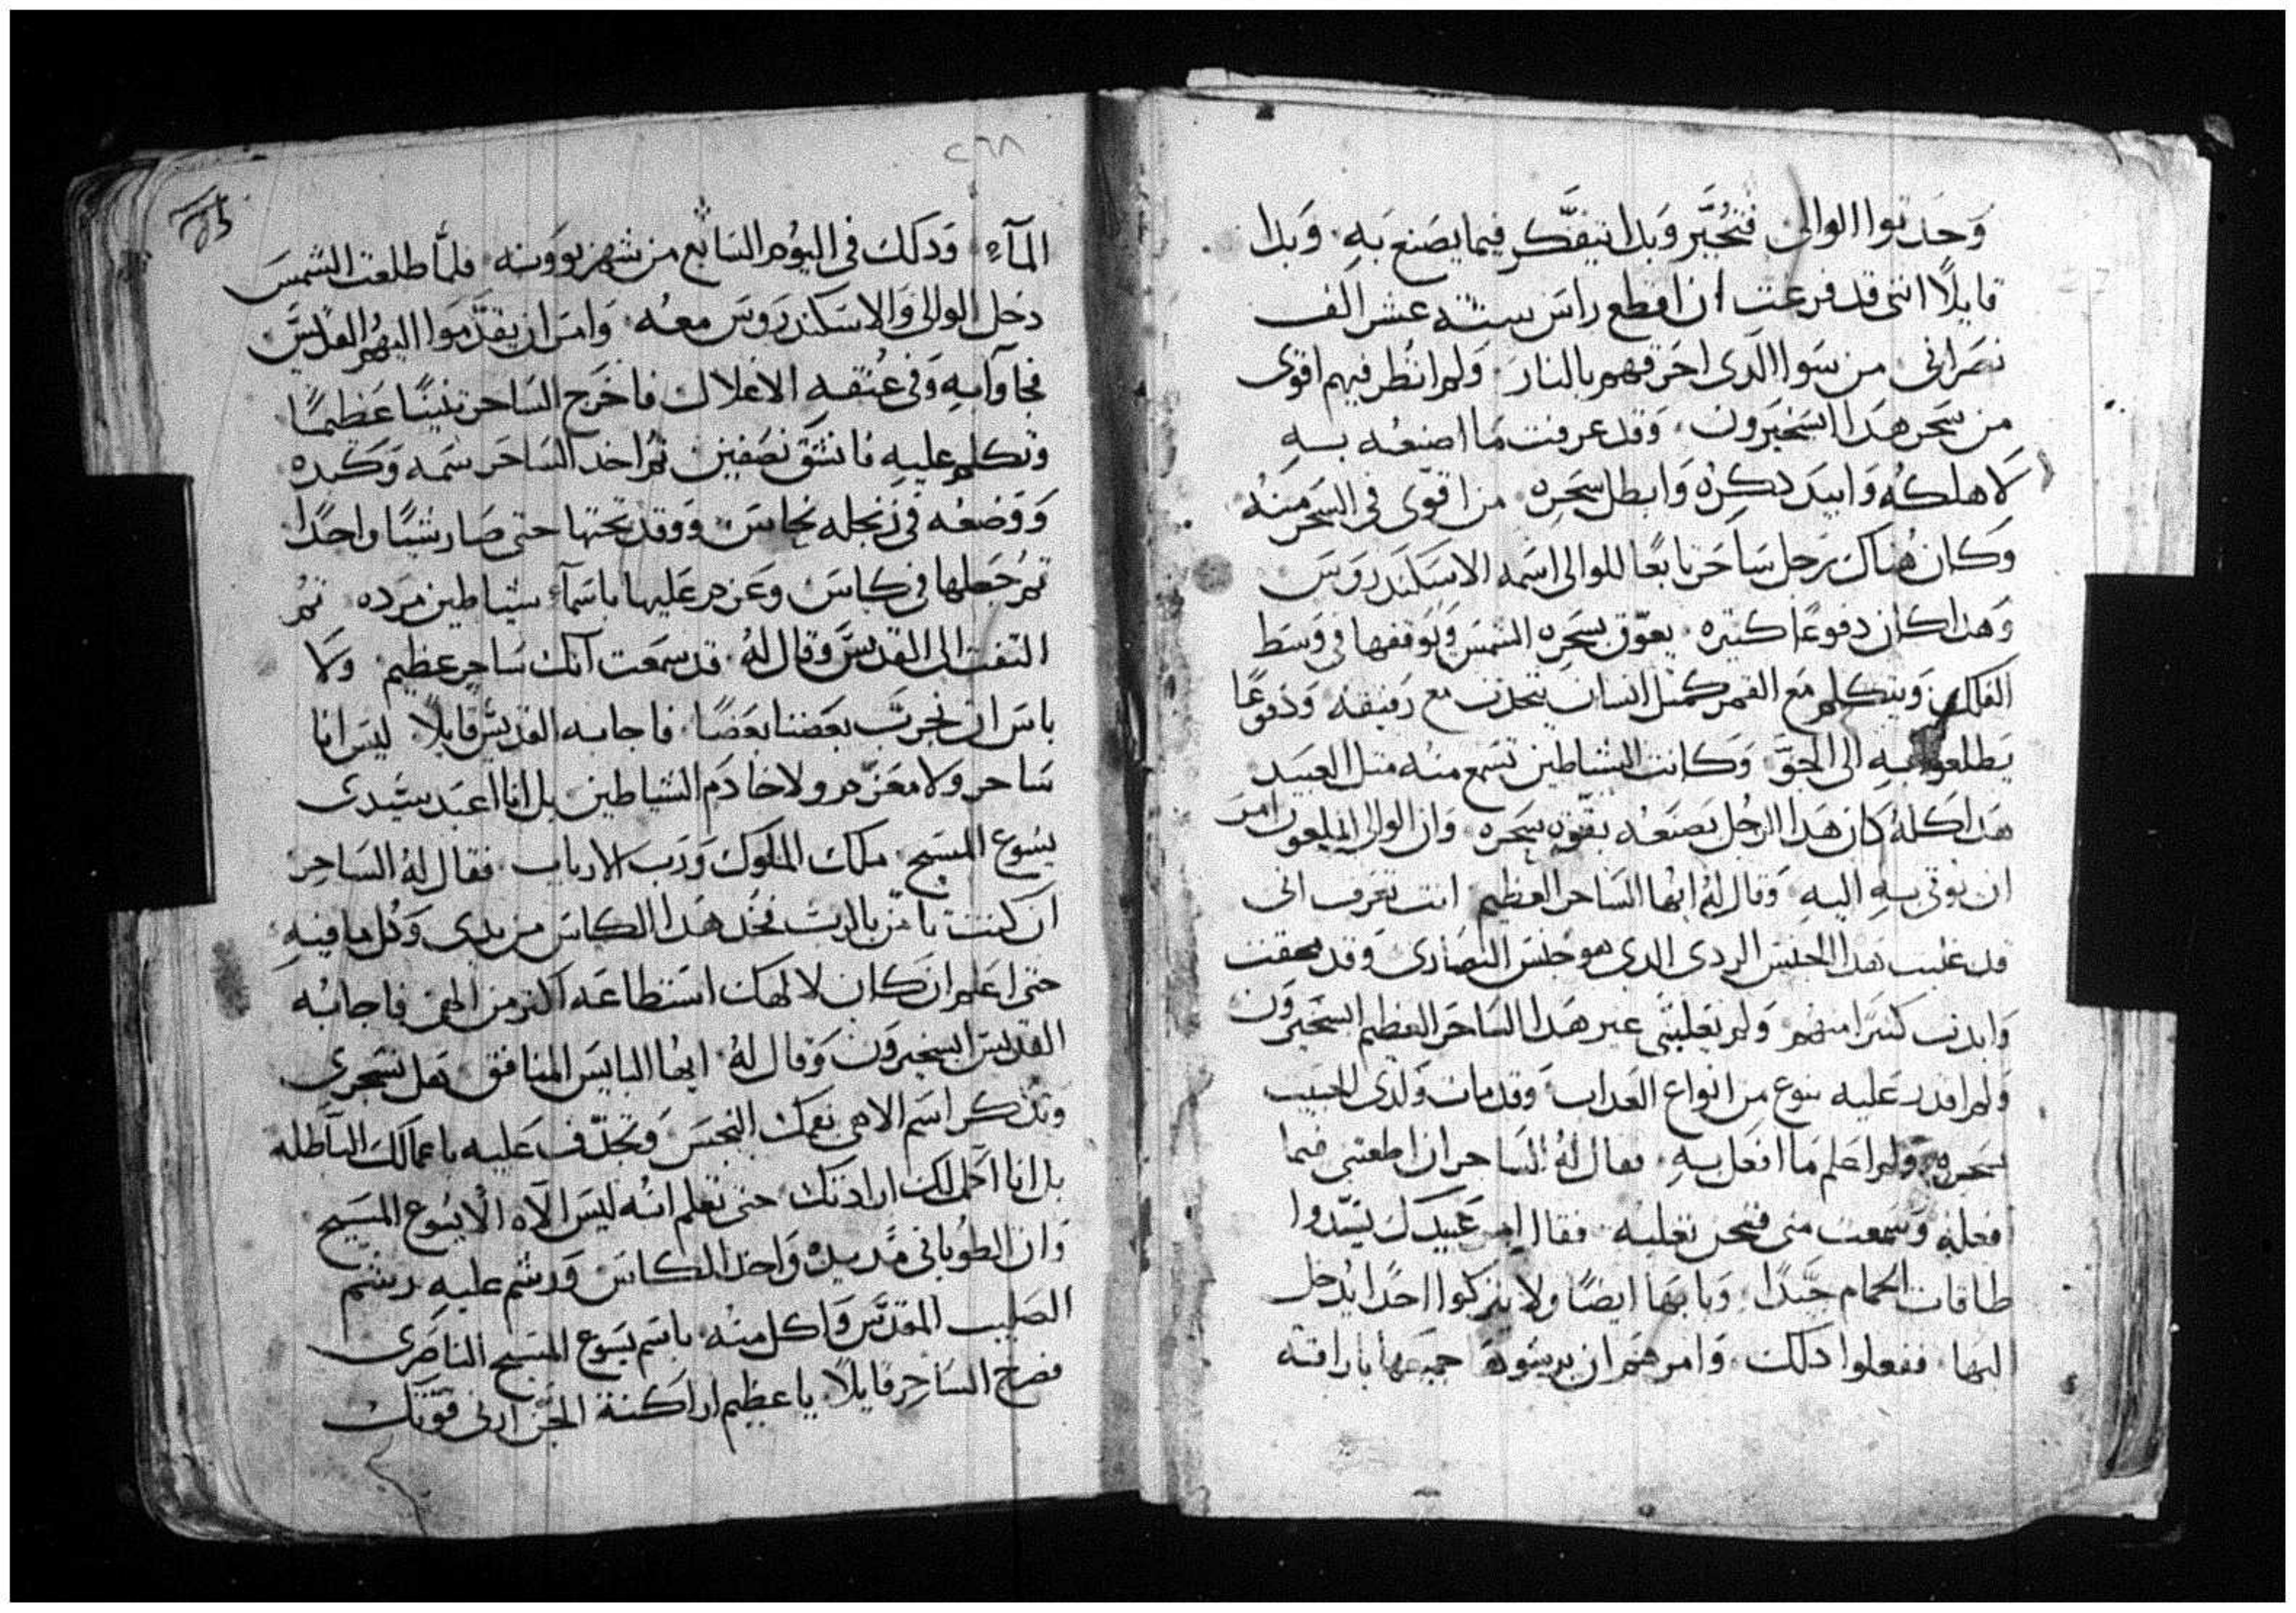 وَحَدتوا الوالى فتحُيَّر وَبدا يتفَّكر فيما يصَنع بَهِ. وَبدا
قايلاً اننى قد فرغت ان اقطع راسَ ستة عشر الف
نصَرانى من سَوا الدَى احَرقتهم بالنارَ. وَلم انظر فيهم اقوى
من سَحر هَدا ابسَخيَرون. وَقد عرفت مَا اصنعُه بهِ
لاهلكُه وَابيَد دكرُه وَابطل سِحَرِه. من اقوّى فى السَحر منهُ
وَكان هُناك رَجل سَاحَر تابعًا للوالى اسَمه الاسَكندروَسَ
وَهدا كان دفوعًا كتيره. يعوّق بسَحَرِه الشمسَ وَيوقفها فى وَسَط
الفلك وَيتكلم مَع القمر كمتل انسان يتحدت مع رفيقه وَدفوعًا
يَطلعوا بهِ الى الجوَّ. وَكانت الشياطين تسَمع منه متل العبَيد
هَدا كلهُ كان هَدا الرَجُل يصَنعَه بقوّه سَحَره. وَان الوالى الملعون امرَ
ان يوتى بهِ اليهِ. وَقال لهُ ايها السَاحر العظيم انت تعَرف انى
قد غلبت هَدا الجنسَ الردى الدى هو جنسَ النصَارى وَقد محقت
وَابدت كتيَرا منهم وَلم يَغلبنى غير هَدا السَاحَر العظيم ابسَخيَروَن
وَلم اقدر عَليه بنوع من انواع العَداب وَقد مات وَلدى الحبَيب
بسَحره وَلم اعلم مَا افعَل بهِ. فقال لهُ السَاحر ان اطعتنى فيما
افعلهِ وَسَمعت منى فنحن نغلبه. فقال امر عَبيدك يسَّدوا
طاقات الحمام جَيَّدًا. وَبابهَا ايضًا ولا يتركوا احدًا يدُخل
اليهَا. ففعلوا دلك. وَامرهَم ان يرَشوهَا جميَعها باراقة
٢٦٨
المآءِ. وَدَلك فى اليوُم السَابع من شهر بووَنه. فلمَّا طلعت الشمسَ
دخل الوالى وَالاسَكندروَسَ معهُ. وَامرَ ان يقدَّموَا اليهُم القدّيسَ
فجاوآ بهِ وَفى عُنقه الاغلال فاخَرَج السَاحر تنينًا عَظيمًا
وَتكلم عليهِ فانشَق نصَفين. تم اخد السَاحَر سَمه وَكبده
وَوَضعُه فى زنجله نحاسَ. وَوقد تحتها حتى صَار شيًا واحدًا
تمُ جَعلها فى كاسَ وعَزم عَليها باسَمآءِ شياطين مرَده. تمُ
التفت الى القديسَ وَقال لهُ. قد سَمعت آنك سَاحر عظيم. وَلا
باسَ ان نجرّب بعَضنا بعَضًا. فاجابه القديسَ قايلاً. ليسَ انا
سَاحر وَلا معَزّم ولا خادَم الشياطين. بل انا اعبَد سيَّدى
يسُوع المسَيح. ملك الملوك وَرَب الارباب. فقال لهُ السَاحر
ان كنت تامَن بالربَ فخُد هَدا الكاسَ من يدى وَكُل ما فيهِ
حتى اعَلم ان كان لالهك استطاعَه اكتر من الهى. فاجابهُ
القديسَ ابسَخيروَن وَقال لهُ. ايهُا البايسَ المنافق هَل تسَحَرى
وتدكر اسَم الاهى بفمك النجسَ وَتجدّف عَليه باعمالك البآطله
بل انا اكمل لك ارادتك. حتى تعلم انهُ ليسَ الآه الّا يسُوع المسَيح
وَان الطوُبانى مَّد يده وَاخد الكاسَ وَرشم عليهِ برشم
الصَليب المقدسَ وَاكل منهُ. باسَم يسَوع المسَيح الناصَرى
فصَرخ السَاحرِ قايلاً يا عظيم اراكنة الجنّ ارنى قوّتك